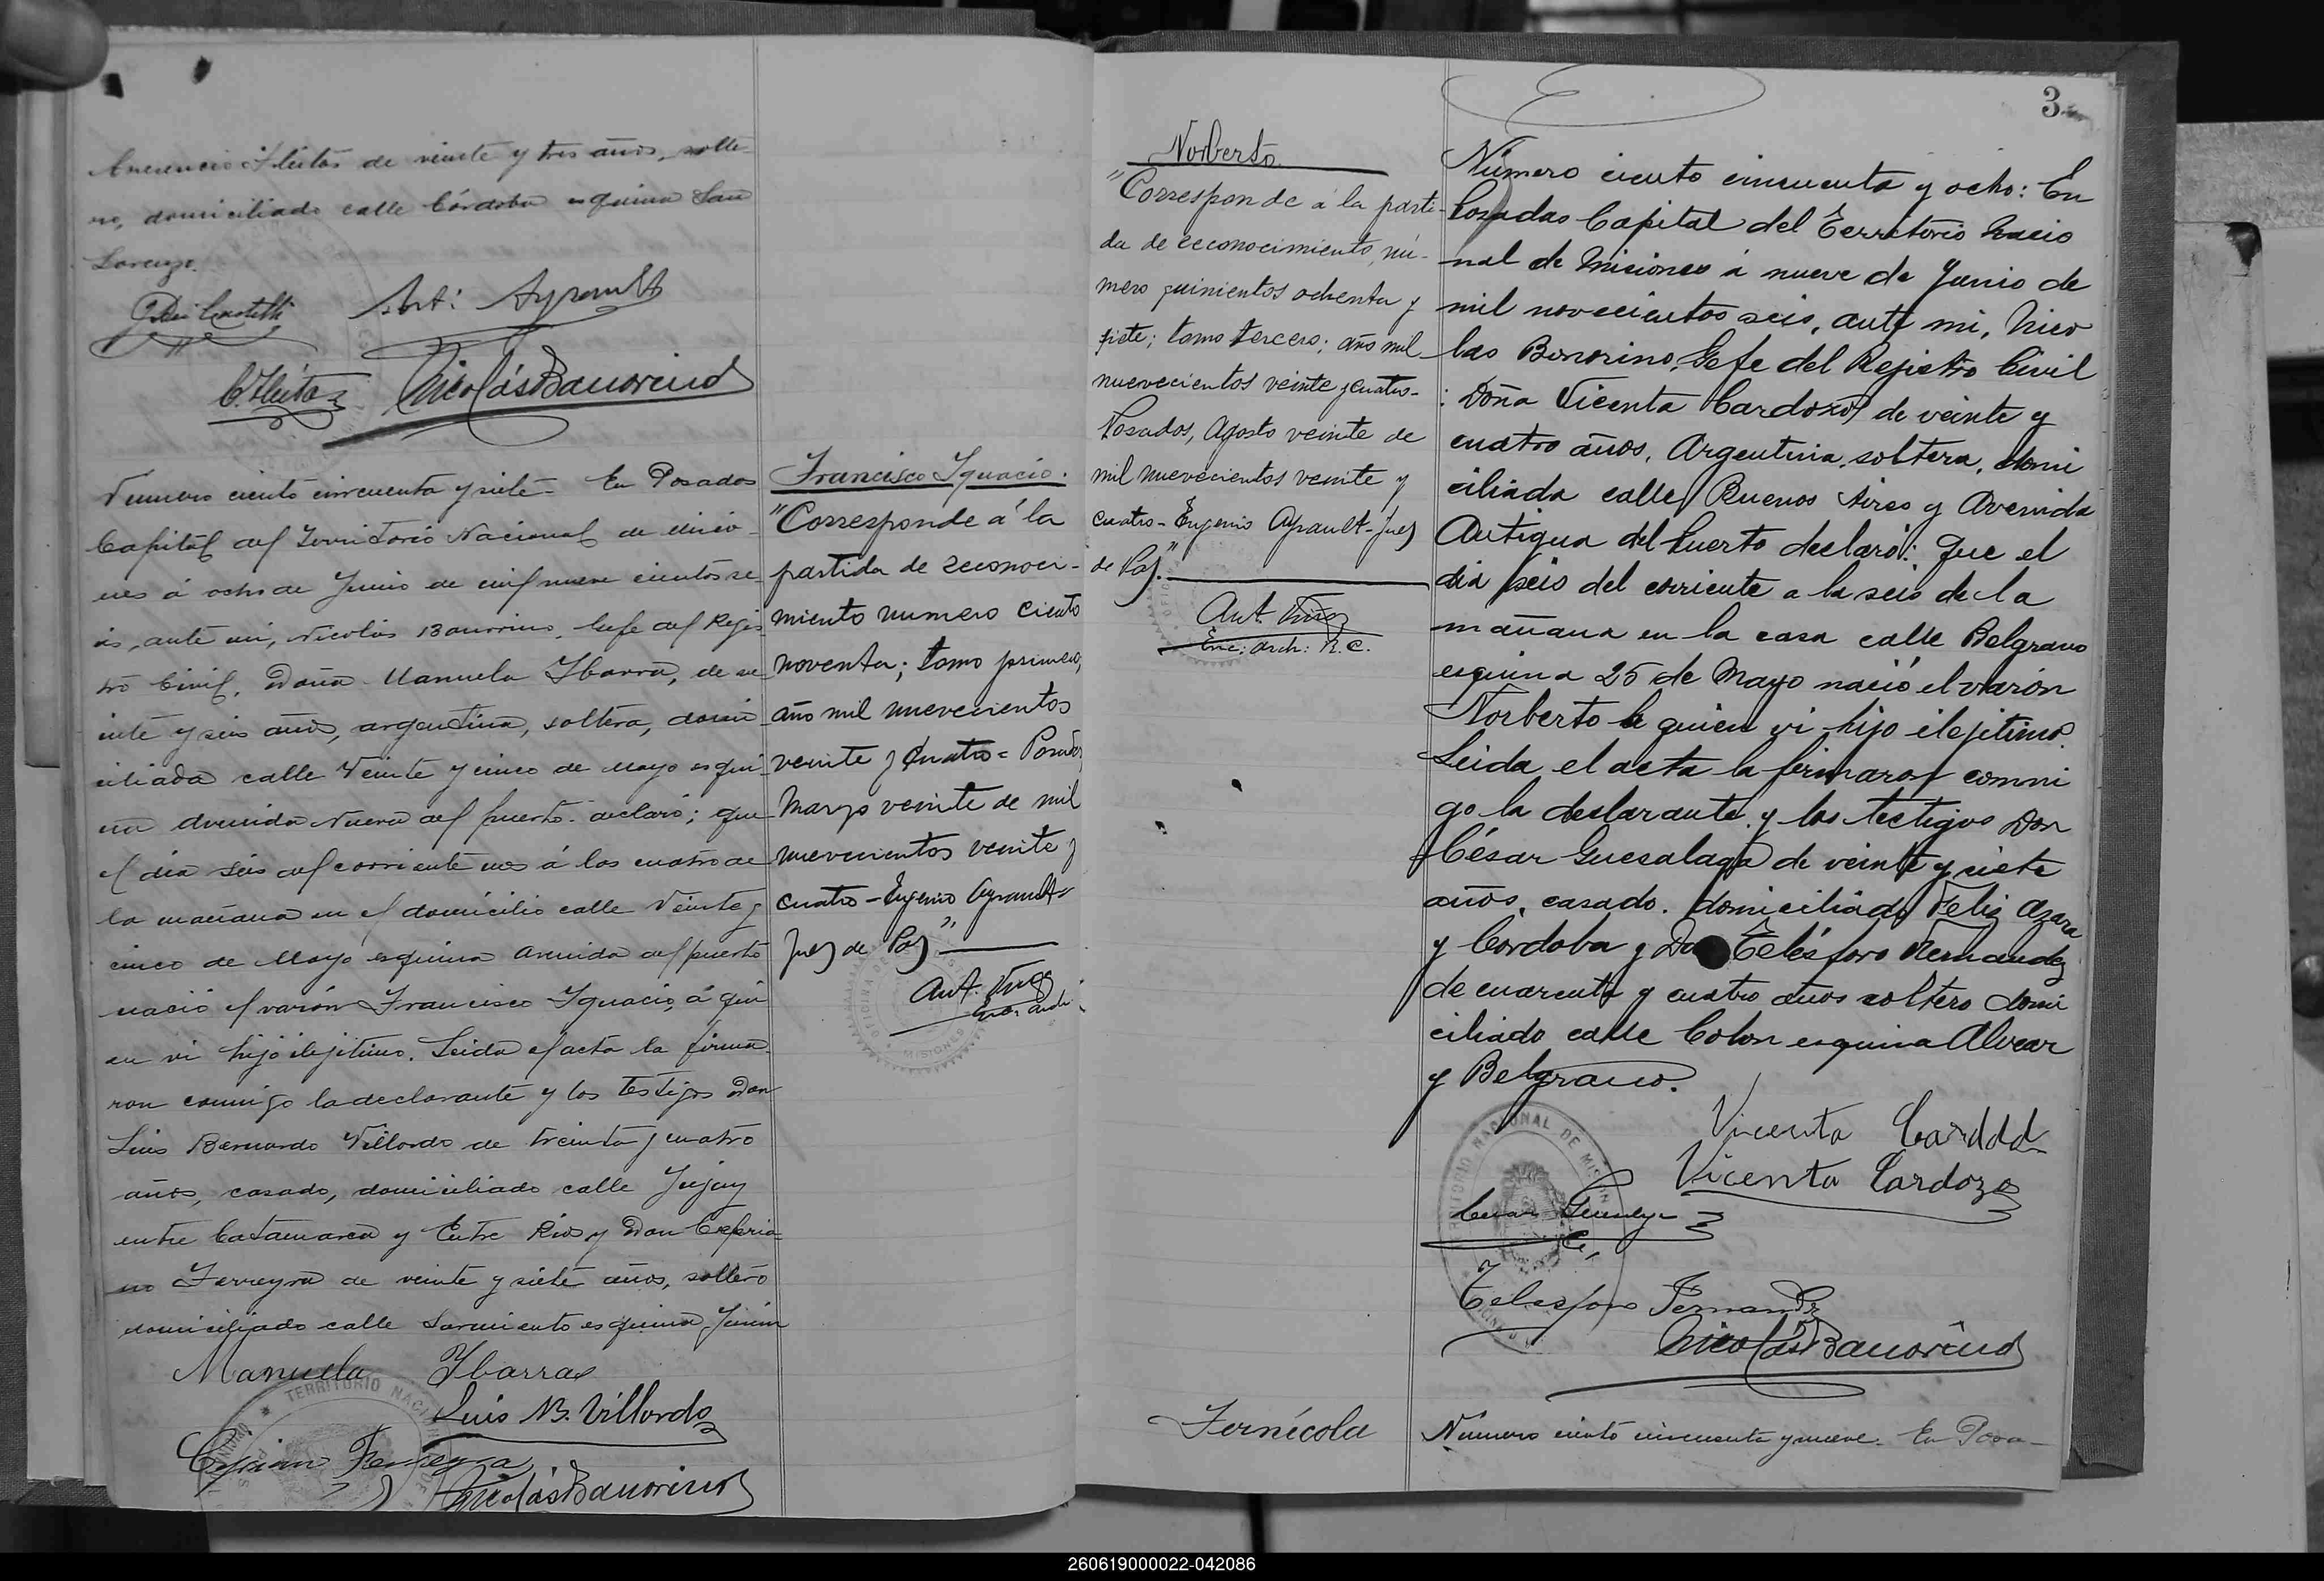 Fleitas de veinte y tres años, solte-
ro, domiciliado calle Córdoba esquina San
Lorenzo.
Ant: Ayrault
C. Fleitas
Nicolás Bonorino
Numero ciento cincuenta y siete - En Posadas
Capital del Territorio Nacional de Misio-
nes á ocho de Junio de mil nueve cientos se
is, ante mi, Nicolás Bonorino, Gefe del Regis
tro Civil, Doña Manuela Ybarra, de ve
inte y seis años, argentina, soltera, domi
ciliada calle Veinte y cinco de Mayo esqui
na Avenida Nueva del puerto. declaró; que
el día seis del corriente mes á las cuatro de
la mañana en el domicilio calle Veinte y
cinco de Mayo esquina Avenida del puerto
nació el varón Francisco Ygnacio, á qui
en vi hijo ilejitimo. Leida el acta la firma-
ron conmigo la declarante y los testigos Don
Luis Bernardo Villordo de treinta y cuatro
años, casado, domiciliado calle Jujuy
entre Catamarca y Entre Rios y Don Cipria
no Ferreyra de veinte y siete años, soltero
domiciliado calle Sarmiento esquina Junin
Manuela Ybarra
Luis B. Villordo
Ciprian Ferreyra
Nicolás Bonorino
TERRITORIO NACIONAL DE
Francisco Ygnacio.
"Corresponde á la
partida de reconoci-
miento numero ciento
noventa; tomo primero,
año mil nuevecientos
veinte y cuatro = Posadas
Marzo veinte de mil
nuevecientos veinte y
cuatro - Eugenio Ayrault -
Juez de Paz"
OFICINA
MISIONES
3
Norberto.
"Corresponde á la parti-
da de reconocimiento, nú-
mero quinientos ochenta y
siete; tomo tercero; año mil
nuevecientos veinte y cuatro-
Posadas, Agosto veinte de
mil nuevecientos veinte y
cuatro - Eugenio Ayrault - Juez
de Paz."
Enc: Arch: R. C.
Número ciento cincuenta y ocho: En
Posadas Capital del Territorio Nacio
nal de Misiones á nueve de Junio de
mil novecientos seis, ante mi, Nico
las Bonorino, Gefe del Rejistro Civil
: Doña Vicenta Cardozo de veinte y
cuatro años, Argentina, soltera, domi
ciliada calle Buenos Aires y Avenida
Antigua del Puerto declaró: Que el
dia seis del corriente a la seis de la
mañana en la casa calle Belgrano
esquina 25 de Mayo nació el varón
Norberto a quien vi hijo ilejitimo.
Leida el acta la firmaron conmi
go la declarante y los tectigos Don
César Guesalaga de veinte y siete
años, casado. domiciliado Feliz Azara
y Cordoba y Don Telésforo Fernandez
de cuarenta y cuatro años soltero domi
ciliado calle Colon esquina Alvear
y Belgrano.
Vicenta
Vicenta Cardozo
TERRITORIO NACIONAL DE MISIONES
Telesforo Fernandez
Nicolás Bonorino
Fernícola
Número ciento cincuenta y nueve. En Posa-
260619000022-042086